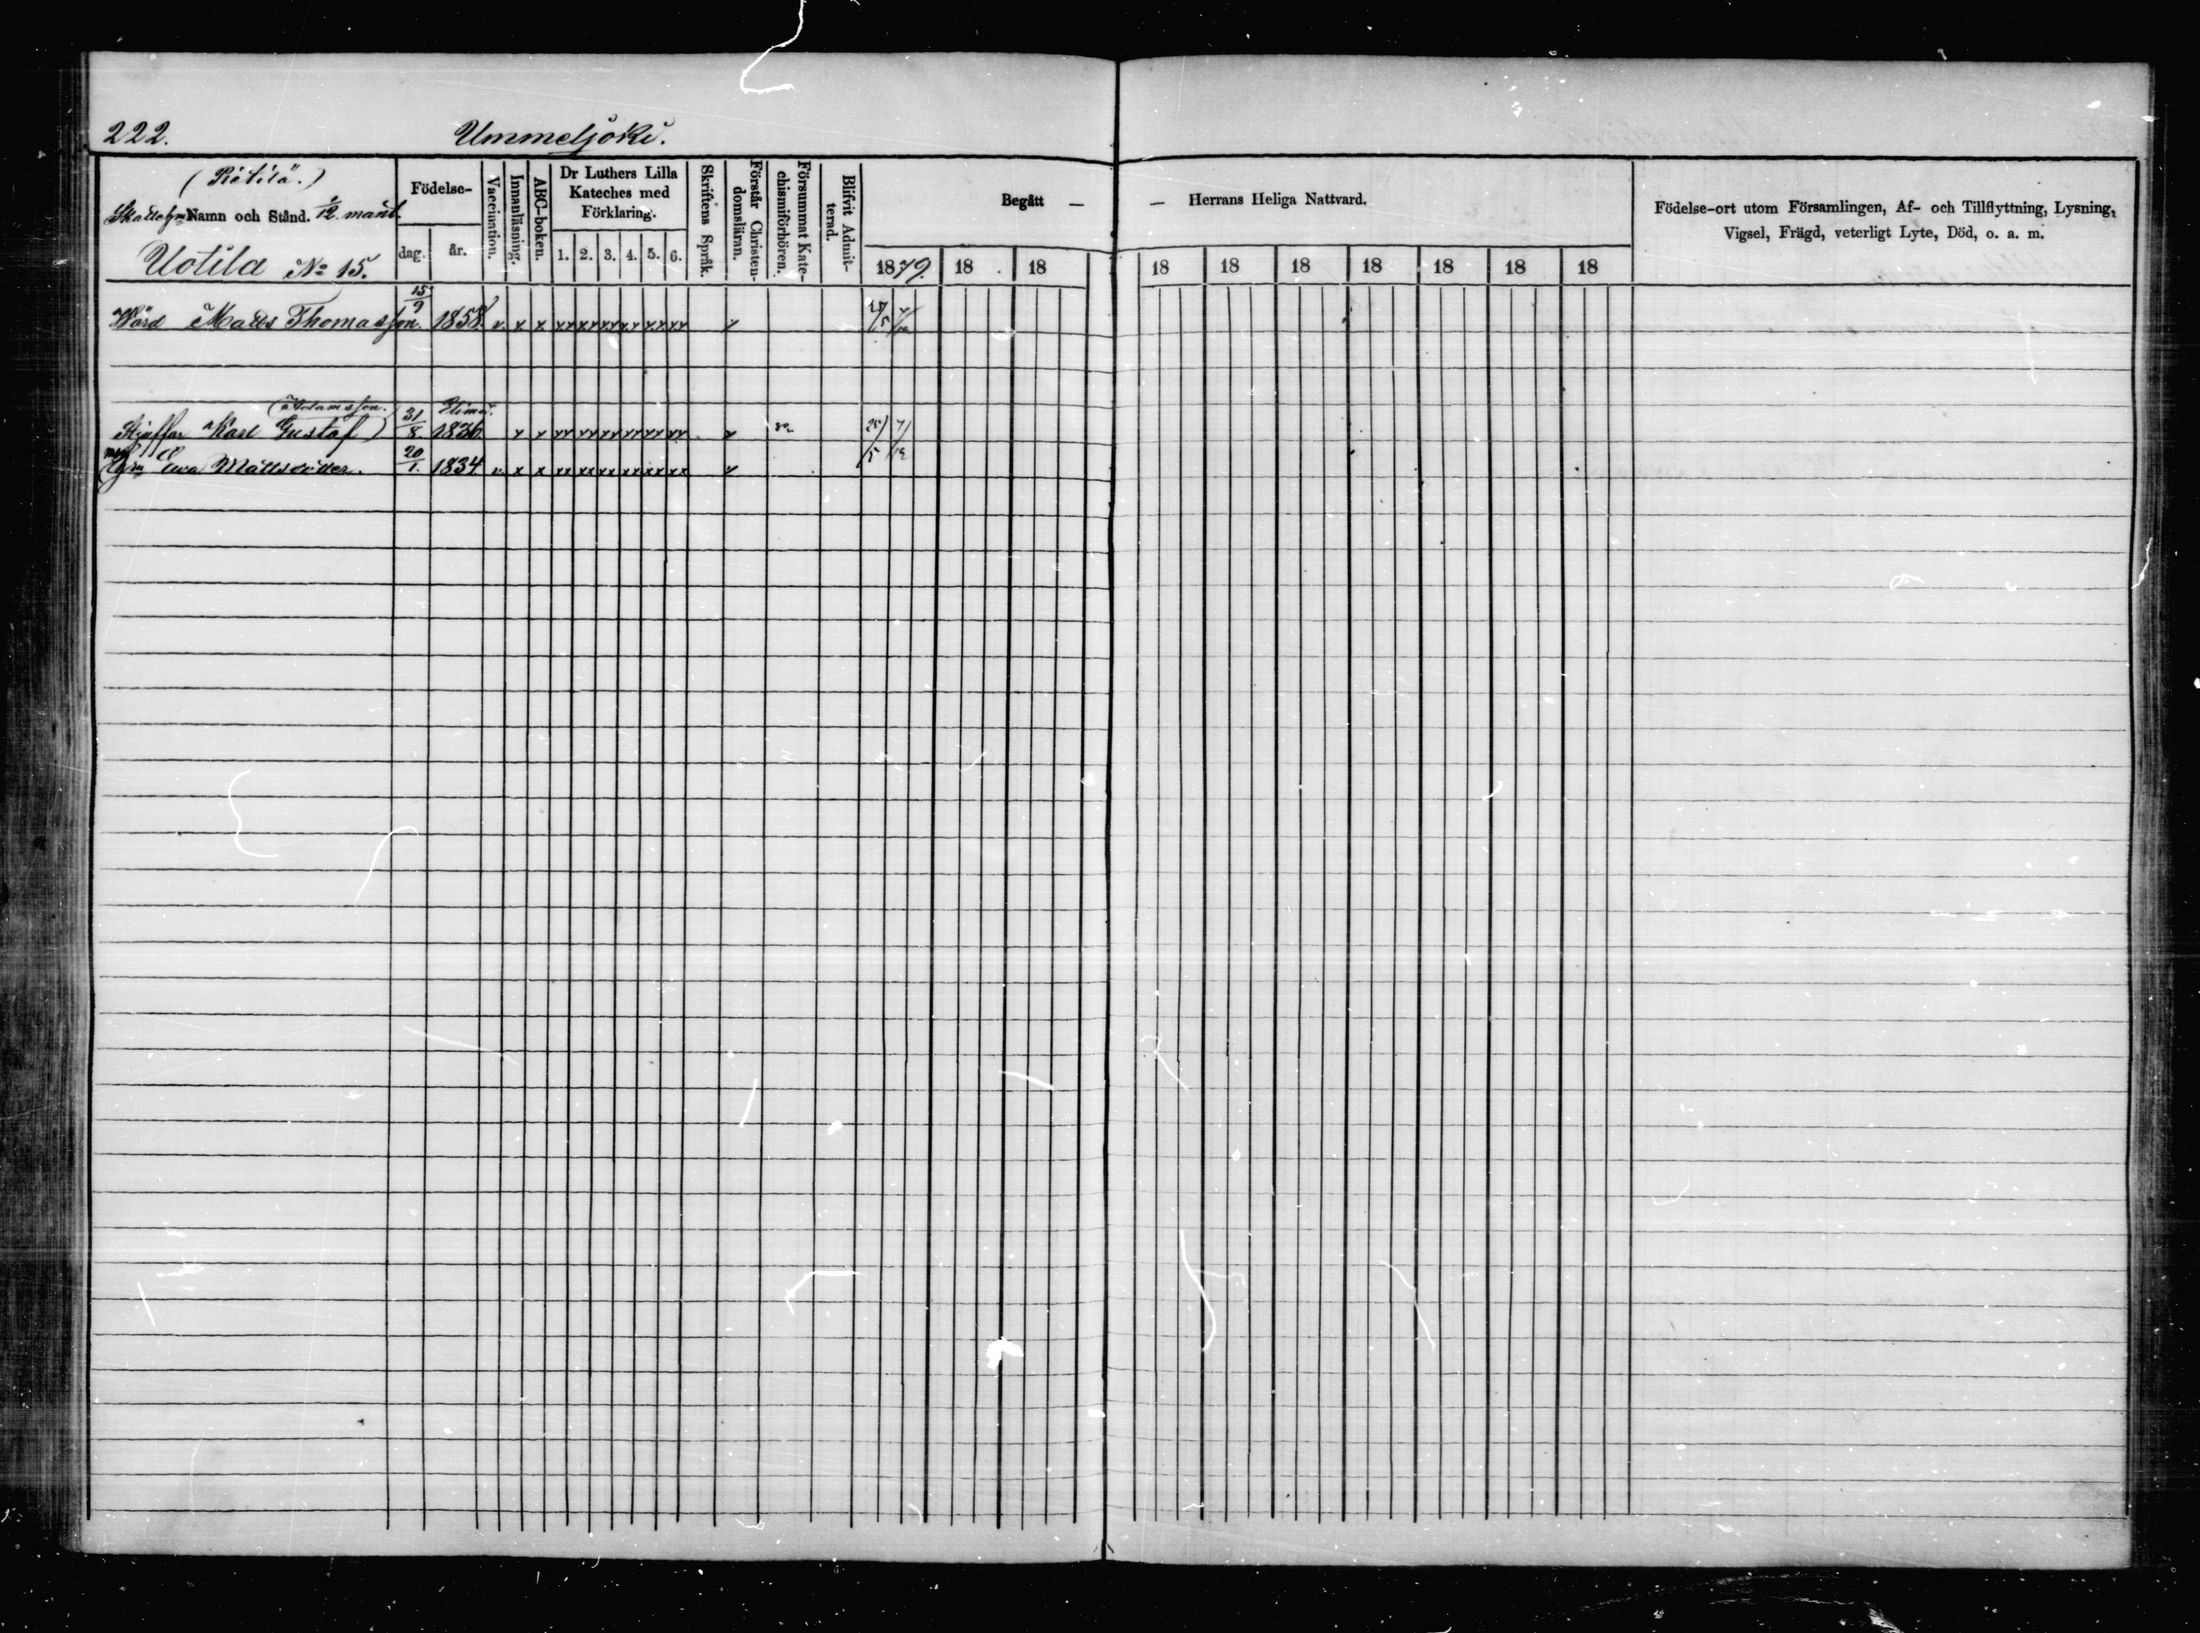 222. Ummeljoki.
(Rietilä.)
Namn och Stånd. 1/12 mant.
Uotila No 15.
Födelse-
dag. år.
Vaccination.
Innanläsning.
ABC-boken.
Dr Luthers Lilla
Kateches med
Förklaring.
1. 2. 3. 4. 5. 6.
Skriftens Språk.
Förstår Christen-
domsläran.
Försummat Kate-
chismiförhören.
Blifvit Admit-
terad.
Begått — — Herrans Heliga Nattvard.
1879. 18 18 18 18 18 18 18 18 18
Födelse-ort utom Församlingen, Af- och Tillflyttning, Lysning,
Vigsel, Frägd, veterligt Lyte, Död, o. a. m.
Wärd Matts Thomasson. 15/9 1858. v. x x xx xx xx xx xx xx v
(Adamsson.) Elimä.
Karl Gustaf) 31/8 1836 x x xx xx xx xx xx xx v 25/5 7/12
Ewa Mattsdotter. 20/1. 1834 v. x x xx xx xx xx xx xx v